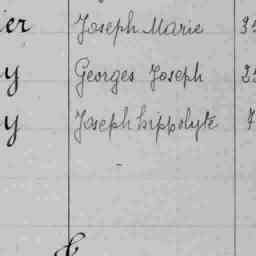 ier Joseph Marie
y Georges Joseph
y Joseph hippolyte